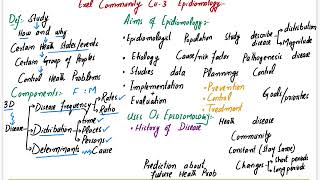 Exel Community Ch-3 Epidemiology:-
Def: study
How and why
Certain Heath States/events
Certain Group of Peoples
Control Health Problems
Components: F : M
3D
Disease
Disease frequency
Rates
Ratio
Distribution
time
Places
Persons
Determinants
Cause
Aims of Epidemiology:-
Epidemologist Population study describe
distribution
Magnitude
Disease
Etiology Cause/risk factor Pathogenesis disease
Studies data Plannings Control
Implementation
Evaluation
Prevention
Control
Treatment
Goals/priorties
Uses Of Epidomology:-
History of Disease
Heath disease
Community
Constant (stay same)
Changes
Short periods
long periods
Prediction about
future Heath Prob